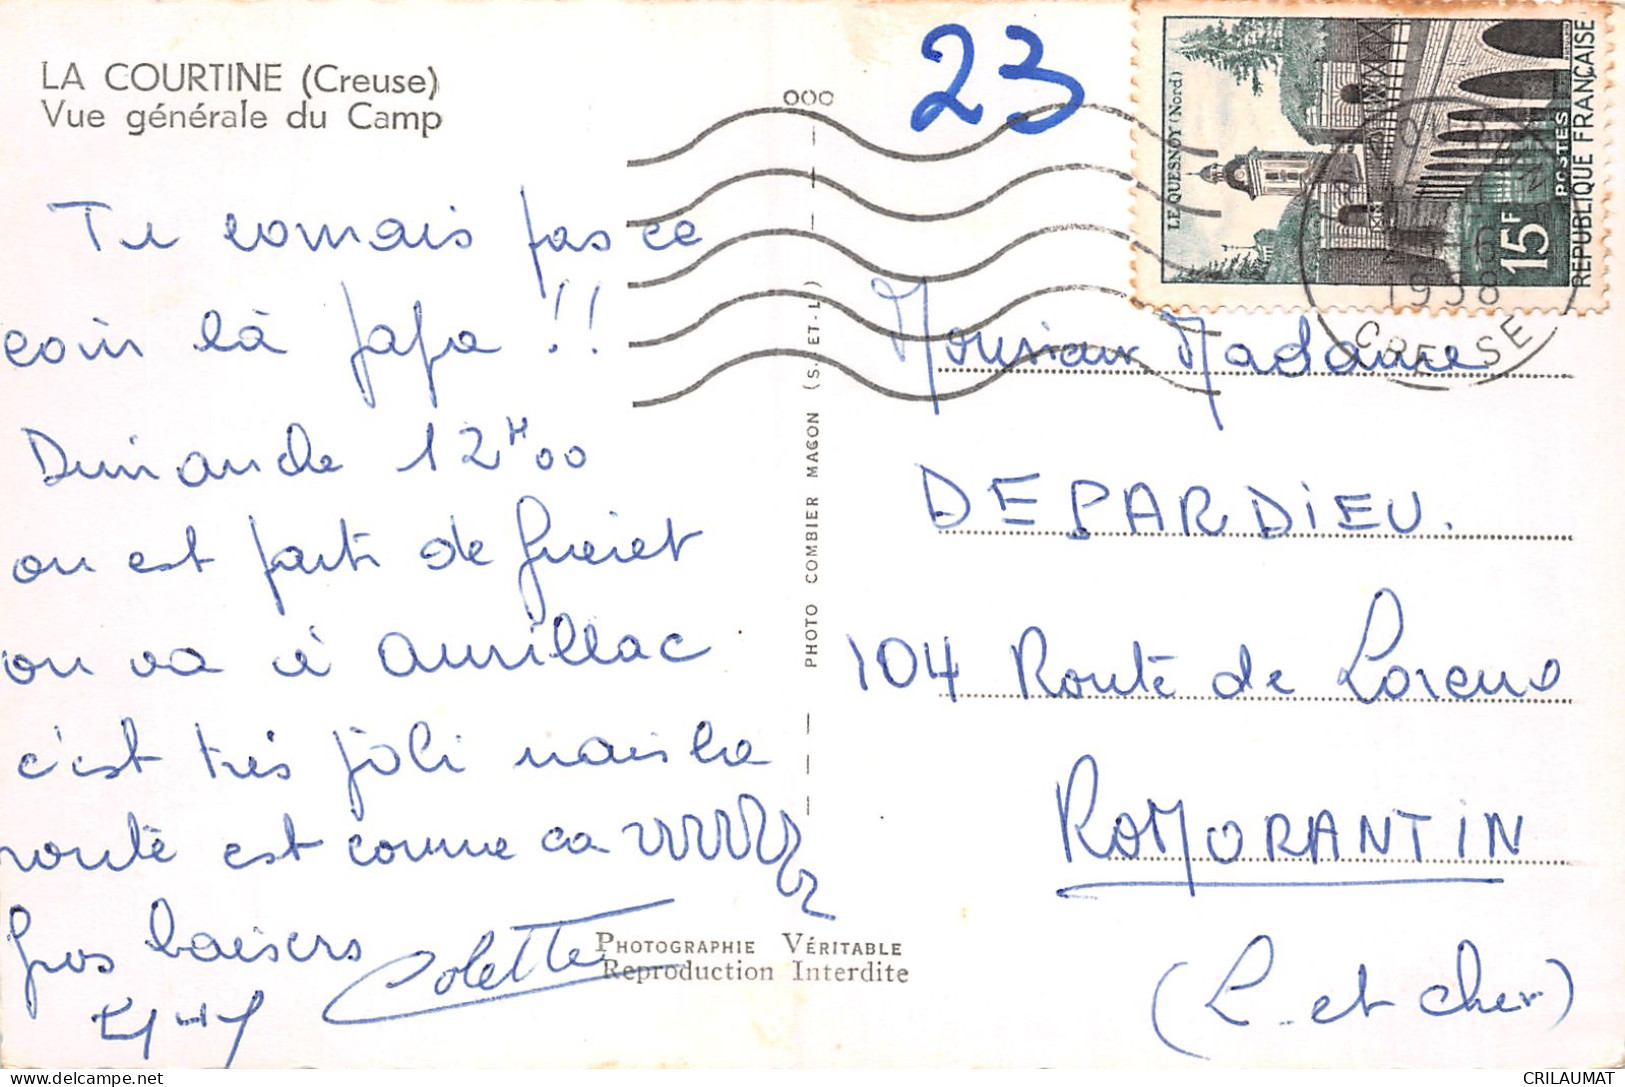 LA COURTINE (Creuse)
Vue générale du Camp
23
LE QUESNOY (Nord)
POSTES
15F
REPUBLIQUE FRANÇAISE
6
1958
CREUSE
Tu connais pas ce
coin là papa !!
Dimanche 12H00
on est parti de Guéret
on va à Aurillac
c'est très joli mais la
route est comme ca
Gros baisers
Colette
PHOTO COMBIER MACON (S.-ET-L.)
Monsieur Madame
DEPARDIEU.
104 Route de Loreux
ROMORANTIN
(L. et cher)
PHOTOGRAPHIE VÉRITABLE
Reproduction Interdite
delcampe.net
CRILAUMAT